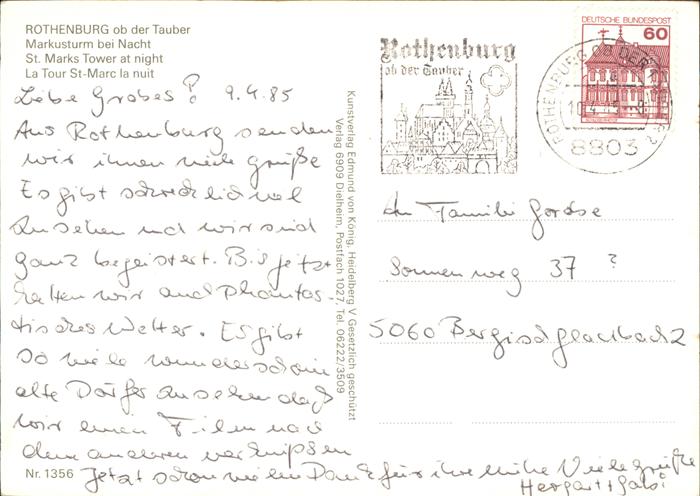 ROTHENBURG ob der Tauber
Markusturm bei Nacht
St. Marks Tower at night
La Tour St-Marc la nuit
Liebe 9.4.85
Aus Rothenburg senden
wir ihnen viele grüße
Es gibt schrecklich viel
zu sehen und wir sind
ganz begeistert. Bis jetzt
hatten wir auch Phantas-
tisches Wetter. Es gibt
so viele wunderschöne
alte Dörfer zu sehen daß
wir einen Film nach
dem anderen verknipsen
Nr. 1356 Jetzt schon vielen Dank für ihre Mühe Viele grüße
Kunstverlag Edmund von König, Heidelberg V Gesetzlich geschützt
Verlag 6909 Dielheim, Postfach 1027, Tel. 06222/3509
Rothenburg
ob der Tauber
DEUTSCHE BUNDESPOST
60
ROTHENBURG OB DER TAUBER
8803
An Familie
Sonnenweg 37 ?
5060 Bergisch gladbach 2